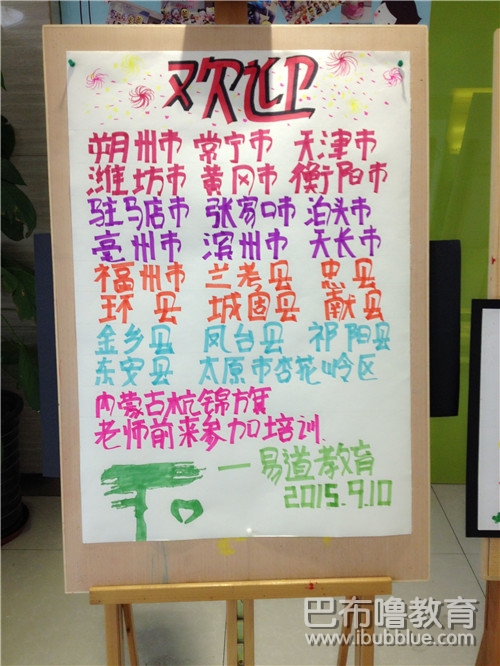 欢迎
朔州市 常宁市 天津市
潍坊市 黄冈市 衡阳市
驻马店市 张家口市 泊头市
亳州市 滨州市 天长市
福州市 兰考县 忠县
环县 城固县 献县
金乡县 凤台县 祁阳县
东安县 太原市杏花岭区
内蒙古杭锦方箕
老师前来参加培训
—易道教育
2015.9.10
巴布噜教育
www.ibubblue.com